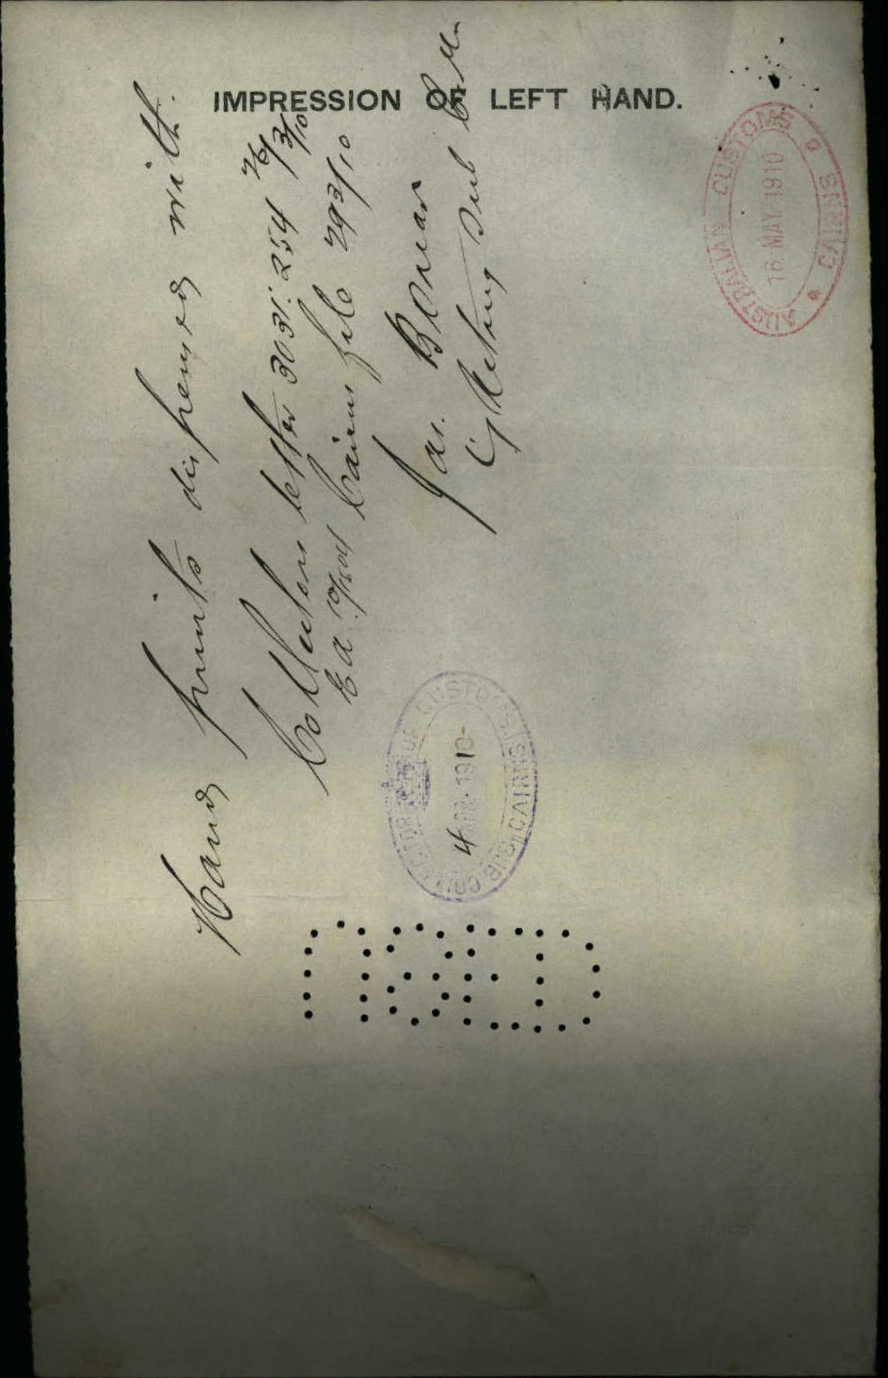 IMPRESSION OF LEFT HAND.
Hand prints dispensed with.
Collectors letter 3031:254 26/3/10
Cairns file 293/10
Jas. Boreas
Acting Sub
AUSTRALIAN CUSTOMS
16 MAY 1910
CAIRNS
SUB COLLECTOR OF CUSTOMS CAIRNS
4 1910